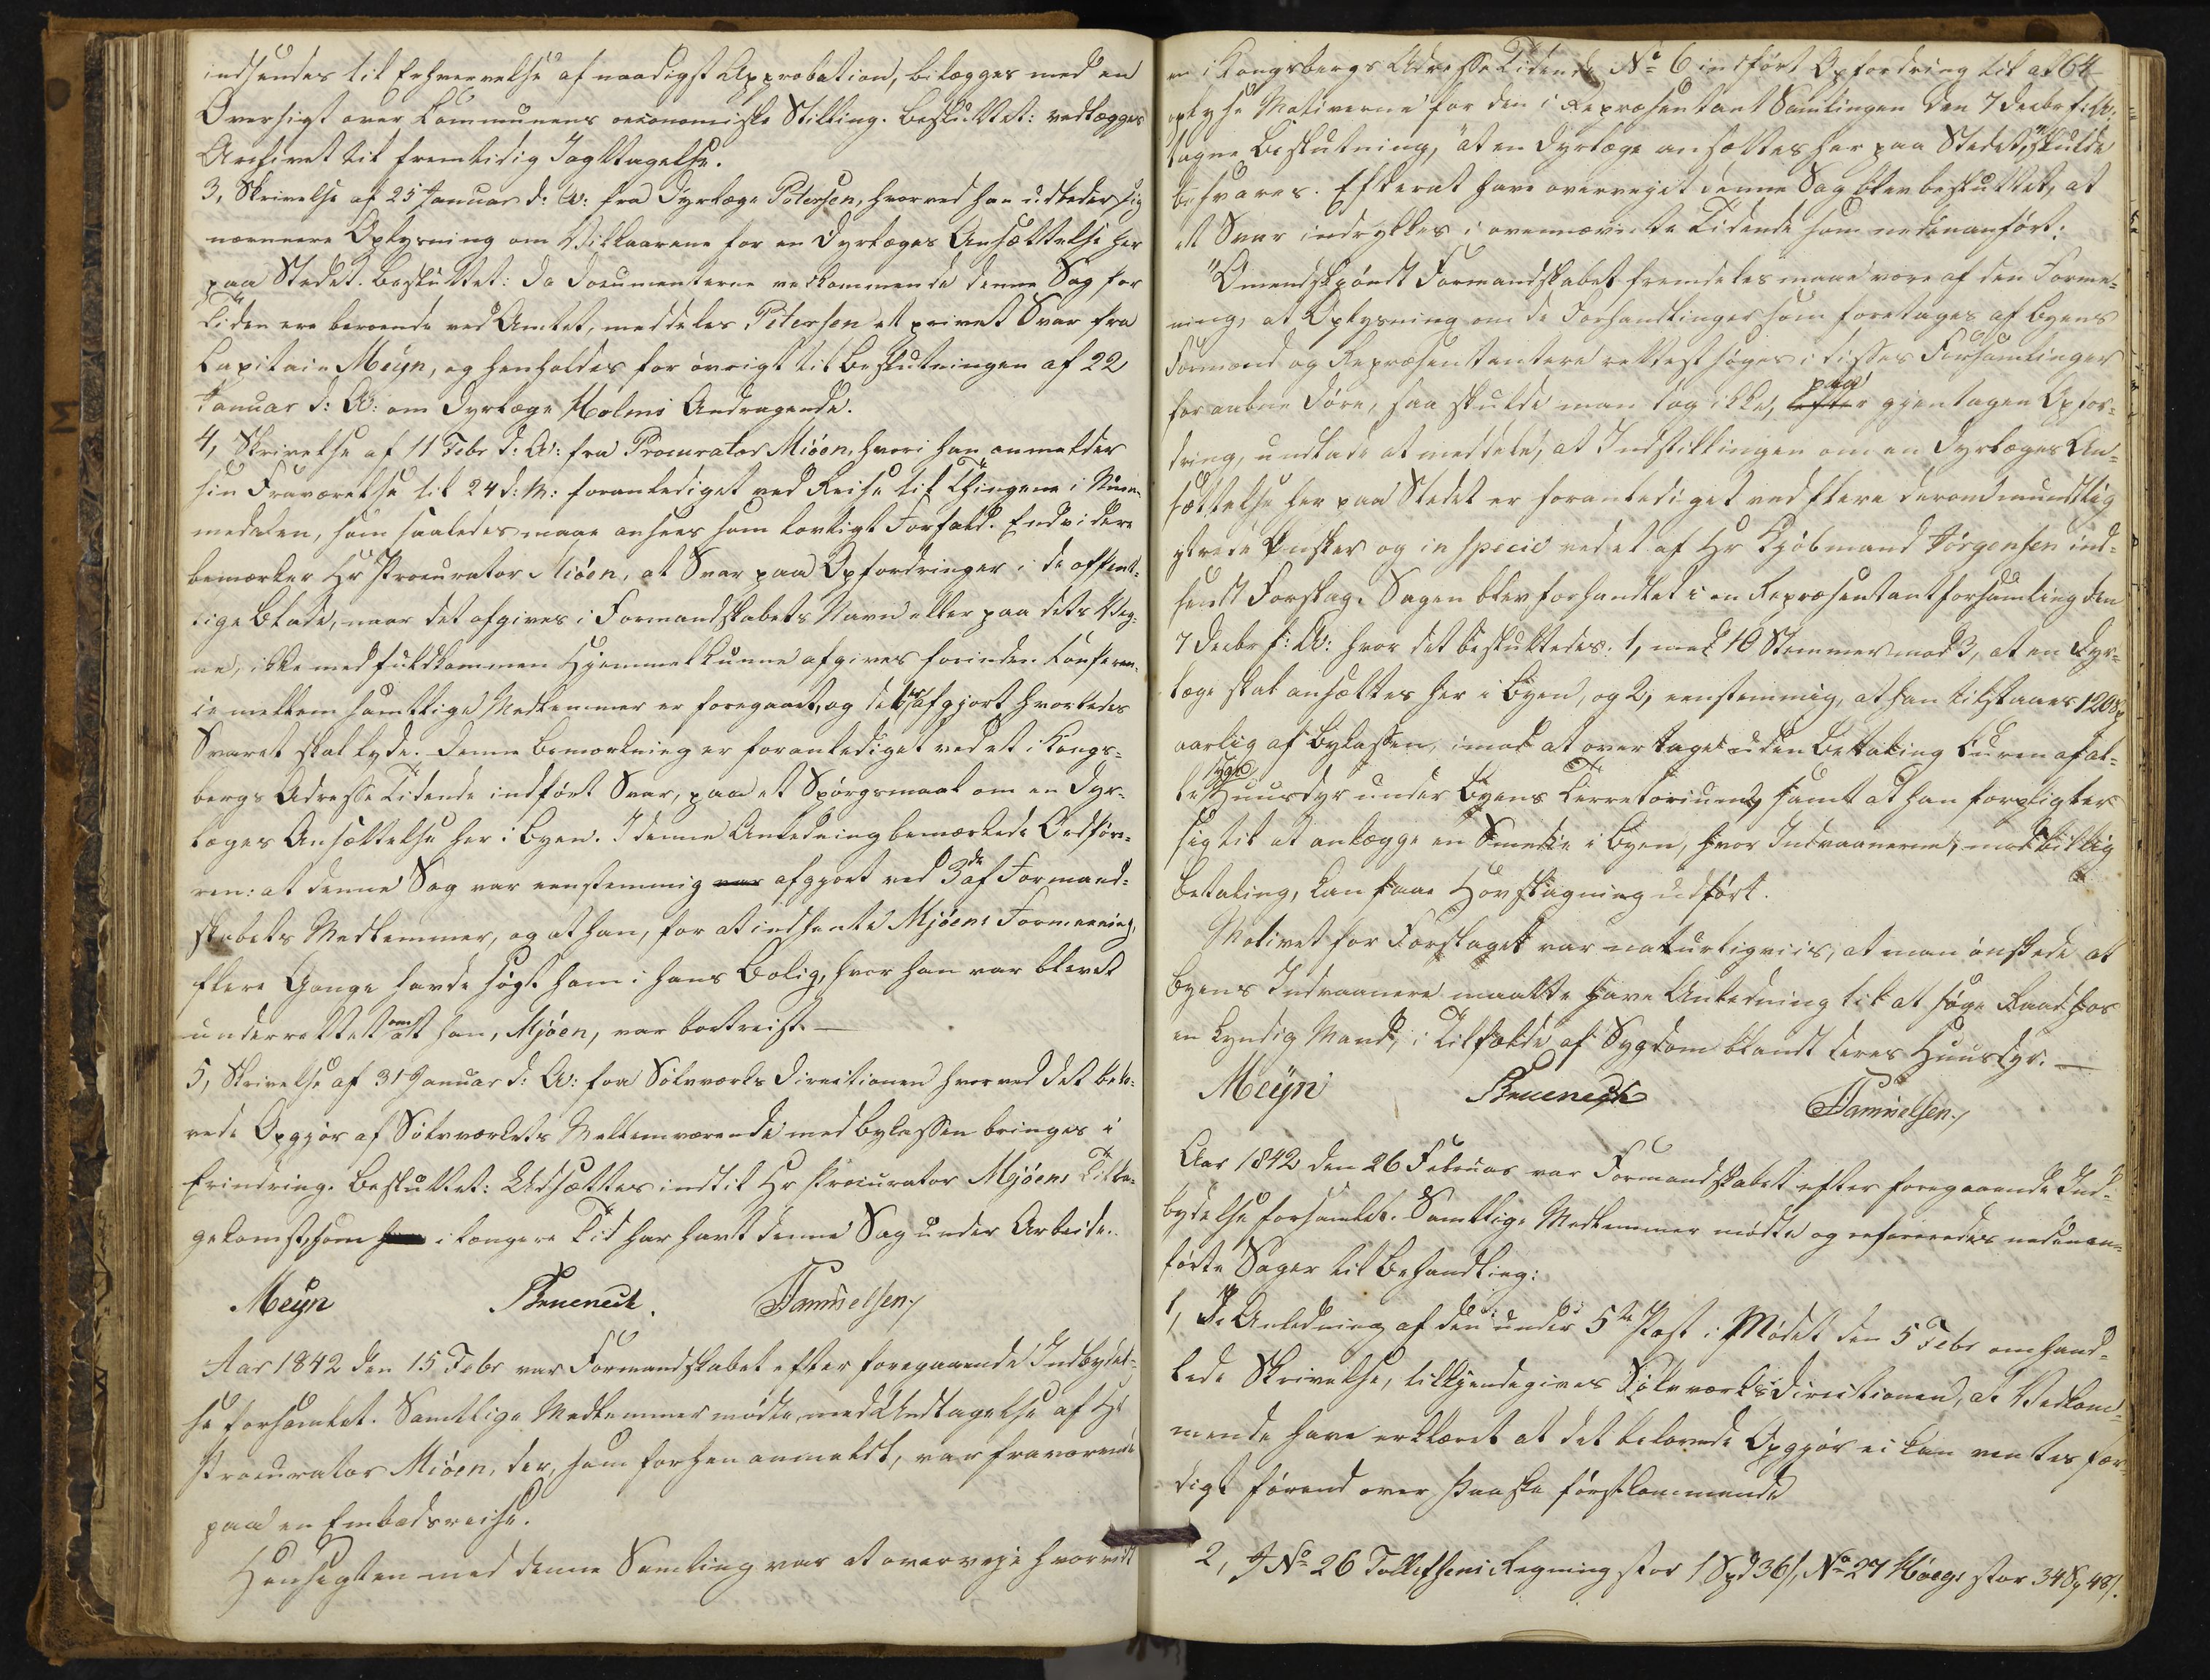 indsendes til Erhvervelse af naadigst Approbation, bilægges med en
Oversigt over Communens oeconomiske Stilling. Besluttet: vedlægges
Archivet til fremtidig Iagttagelse.
3, Skrivelse af 25 Januar d: A: fra Dyrlæge Petersen, hvorved han udbeder sig
nærmere Oplysning om Vilkaarene for en Dyrlæges Ansættelse her
paa Stedet. Besluttet: da Documenterne vedkommende denne Sag for
Tiden ere beroende ved Amtet, meddeles Petersen et privat Svar fra
Capitain Meÿn, og henholdes for övrigt til Beslutningen af 22
Januar d: A: om Dyrlæge Holms Andragende.
4, Skrivelse af 11 Febr d: A: fra Procurator Miöen, hvori han anmelder
sin Fraværelse til 24 d: M: foranlediget ved Reise til Thingene i Num-
medalen, som saaledes maae ansees som lovligt Forfald. Endvidere
bemærker Hr Procurator Miöen, at Svar paa Opfordringer i de offent-
lige Blade, naar det afgives i Formandskabets Navn eller paa dets Veg-
ne, ikke med fuldkommen Hjemmel kunne afgives forinden Conferen-
ce mellem samtlige Medlemmer er foregaaet, og det er afgjort hvorledes
Svaret skal lyde. Denne Bemærkning er foranlediget ved et i Kongs-
bergs Adresse Tidende indfört Svar, paa et Spörgsmaal om en Dyr-
læges Ansættelse her i Byen. I denne Anledning bemærkede Ordföre-
ren: at denne Sag var eenstemmig var afgjort ved 3de af Formand-
skabets Medlemmer, og at han, for at indhente Mjöens Formeening,
flere Gange havde sögt ham i hans Bolig, hvor han var blevet
underrettet om at han, Mjöen, var bortreist. —
5, Skrivelse af 31 Januar d: A: fra Sölvværks Directionen hvorved det belo-
vede Opgjör af Sölvværkets Mellemværende med Bykassen bringes i
Erindring. Besluttet: Udsættes indtil Hr Procurator Mjöens Tilba-
gekomst, som i længere Tid har havt denne Sag under Arbeide.
Meÿn Steenech. Samuelsen
Aar 1842 den 15 Febr var Formandskabet efter foregaaende Indbydel-
se forsamlet. Samtlige Medlemmer mödte, med Undtagelse af Hr
Procurator Miöen, der, som forhen anmeldt, var fraværende
paa en Embedsreise.
Hensigten med denne Samling var at overveje hvorvidt
en i Kongsbergs Adresse Tidende No 6 indfört Opfordring til at
oplyse Motiverne for den i Repræsentant Samlingen den 7 Decbr f: A:
tagne Beslutning, "at en Dyrlæge ansættes her paa Stedet," skulde
besvares. Efterat have overveiet denne Sag blev besluttet, at
et Svar indrykkes i ovennævnte Tidende som nedenanfört:
"Omendskjöndt Formandskabet fremdeles maae være af den Forme-
ning, at Oplysning om de Forhandlinger som foretages af Byens
Formænd og Repræsentantere rettest söges i disses Forsamlinger
for aabne Döre, saa skulde man dog ikke, efter paa gjentagen Opfor-
dring, undlade at meddele, at Indstillingen om en Dyrlæges An-
sættelse her paa Stedet er foranlediget ved flere derom mundtlig
yttrede Önsker og in specie ved et af Hr Kjöbmand Jörgensen ind-
sendt Forslag. Sagen blev forhandlet i en Repræsentantforsamling den
7 Decbr f: A: hvor det besluttedes: 1, med 10 Stemmer mod 3, at en Dyr-
læge skal ansættes her i Byen, og 2, eenstemmig, at han tilstaaes 120
aarlig af Bykassen, imod at overtage uden Betaling Curen af al-
le syge Huusdyr under Byens Terretorium, samt at han forpligter
sig til at anlægge en Smedie i Byen, hvor Indvaanerne, mod billig
Betaling, kan faae Hovslagning udfört.
Motivet for Forslaget var naturligviis, at man önskede at
Byens Indvaanere maatte have Anledning til at söge Raad hos
en kyndig Mand, i Tilfælde af Sygdom blandt deres Huusdyr. —
Meÿn Steenech Samuelsen
Aar 1842 den 26 Februar var Formandskabet efter foregaaende Ind-
bydelse forsamlet. Samtlige Medlemmer mödte og refereredes nedenan-
förte Sager til Behandling:
1, I Anledning af den under 5te Post i Mödet den 5 Febr omhand-
lede Skrivelse, tilkjendegives Sölvværksdirectionen, at Vedkom-
mende have erklæret at det belovede Opgjör ei kan ventes fær-
digt förend over Paaske förstkommende
2, J No 26 Tollefsens Regning stor 1 Spd 36 s, No 27 Höegs stor 34 48 s.